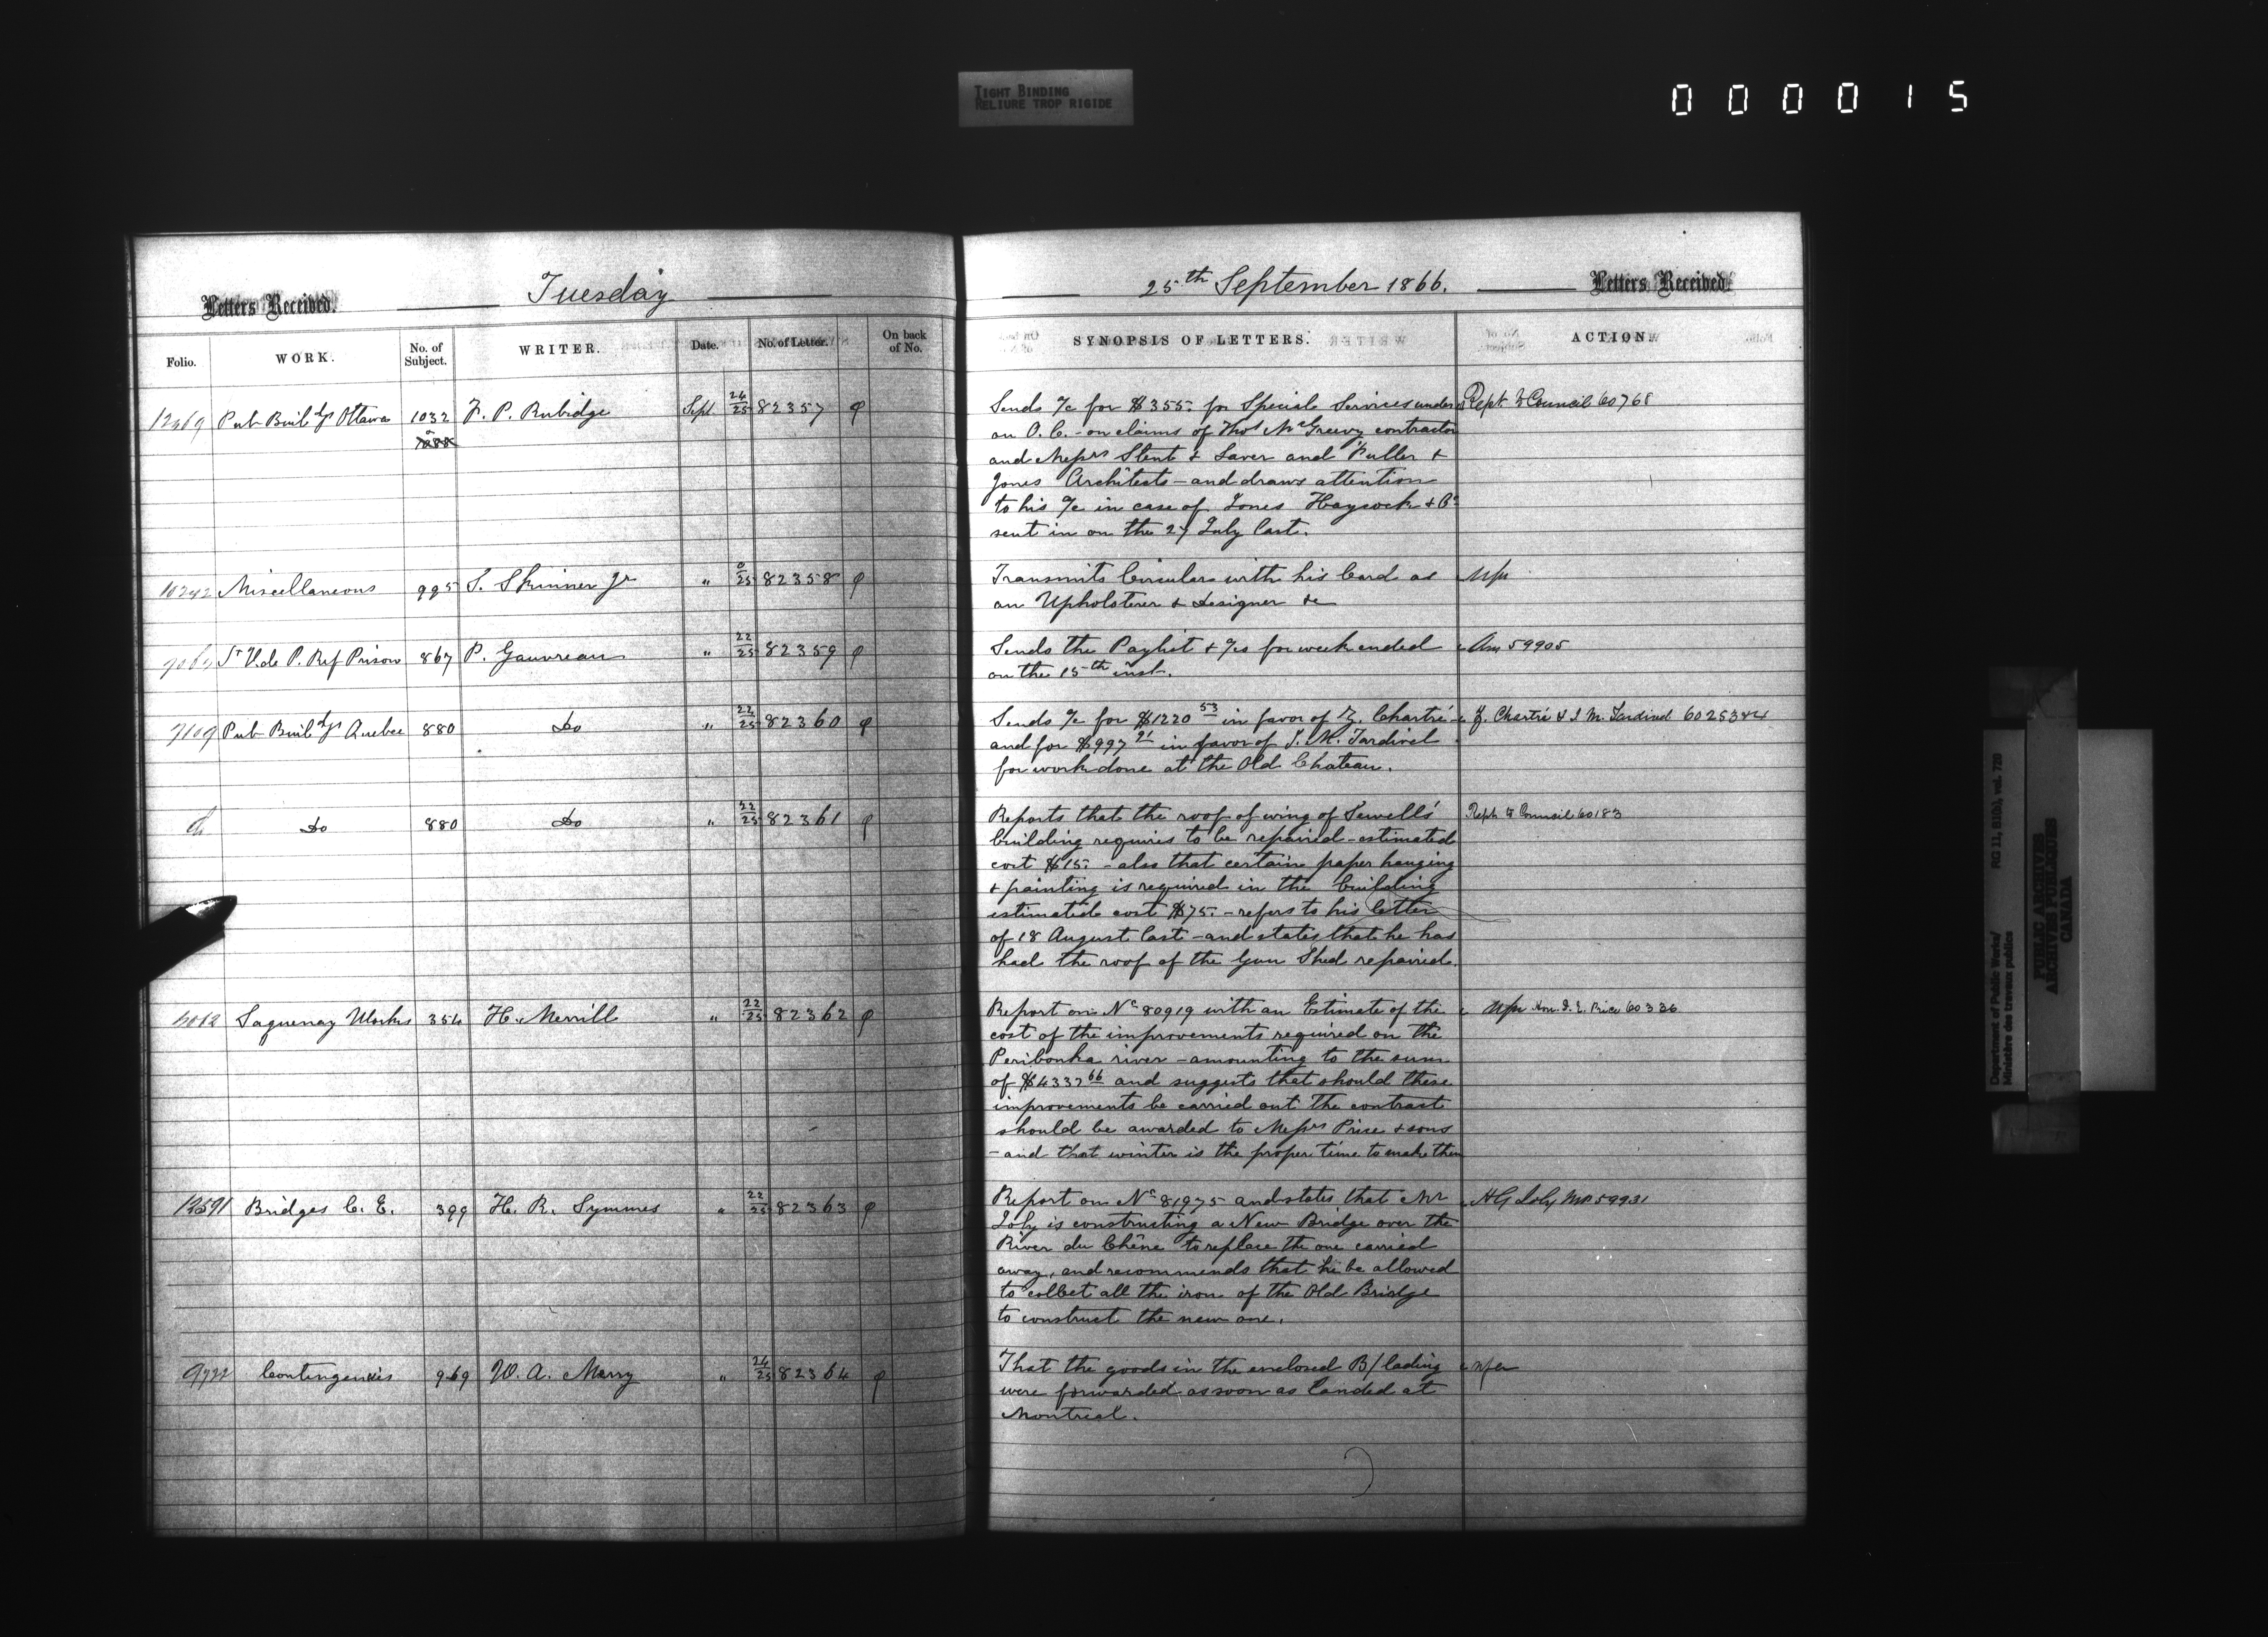 TIGHT BINDING
RELIURE TROP RIGIDE
000015
Letters Received.
Tuesday
25th September 1866.
Letters Received
Folio. WORK. No. of Subject. WRITER. Date. No. of Letter. On back of No.
SYNOPSIS OF LETTERS. ACTION
12469 Pub Buildgs Ottawa 1032 F. P. Rubidge Sept. 24/25 82357
Sends a/c for $355. for Special Services under
an O. C. - on claims of Thos McGreevy contractor
and Messrs Stent & Laver and Fuller &
Jones Architects - and draws attention
to his a/c in case of Jones Haycock & Co
sent in on the 27 July last.
Rept to Council 60768
Miscellaneous 995 S. Skinner Jr " 0/25 82358
Transmits Circulars with his Card as
an Upholsterer & Designer &c
St V. de P. Ref Prison 867 P. Gauvreau " 22/25 82359
Sends the Paylist & a/cs for week ended
on the 15th inst.
Ans 59905
7109 Pub Buildgs Quebec 880 Do " 22/25 82360
Sends a/c for $1220 53 in favor of Z. Chartré
and for $997 21 in favor of J. M. Tardivel
for work done at the Old Chateau.
Z. Chartré & J. M. Tardivel 60253&4
do Do 880 Do " 22/25 82361
Reports that the roof of wing of Sewell's
building requires to be repaired - estimated
cost $15. - also that certain paper hanging
& painting is required in the building
estimated cost $75. - refers to his letter
of 18 August last - and states that he has
had the roof of the Gun Shed repaired.
Rept to Council 60183
Saguenay Works 354 H. Merrill " 22/25 82362
Report on No 80919 with an Estimate of the
cost of the improvements required on the
Peribonka river - amounting to the sum
of $4337 66 and suggests that should these
improvements be carried out the contract
should be awarded to Messrs Price & sons
- and that winter is the proper time to make them
Hon. D. E. Price 60336
12591 Bridges C. E. 399 H. R. Symmes " 22/25 82363
Report on No 81975 and states that Mr
Joly is constructing a New Bridge over the
River du Chêne to replace the one carried
away, and recommends that he be allowed
to collect all the iron of the Old Bridge
to construct the new one.
H G Joly MPP 59931
9722 Contingencies 969 W. A. Merry " 24/25 82364
That the goods in the enclosed B/lading
were forwarded as soon as landed at
Montreal.
Department of Public Works/
Ministère des travaux publics
RG 11, B1(b), vol. 720
PUBLIC ARCHIVES
ARCHIVES PUBLIQUES
CANADA